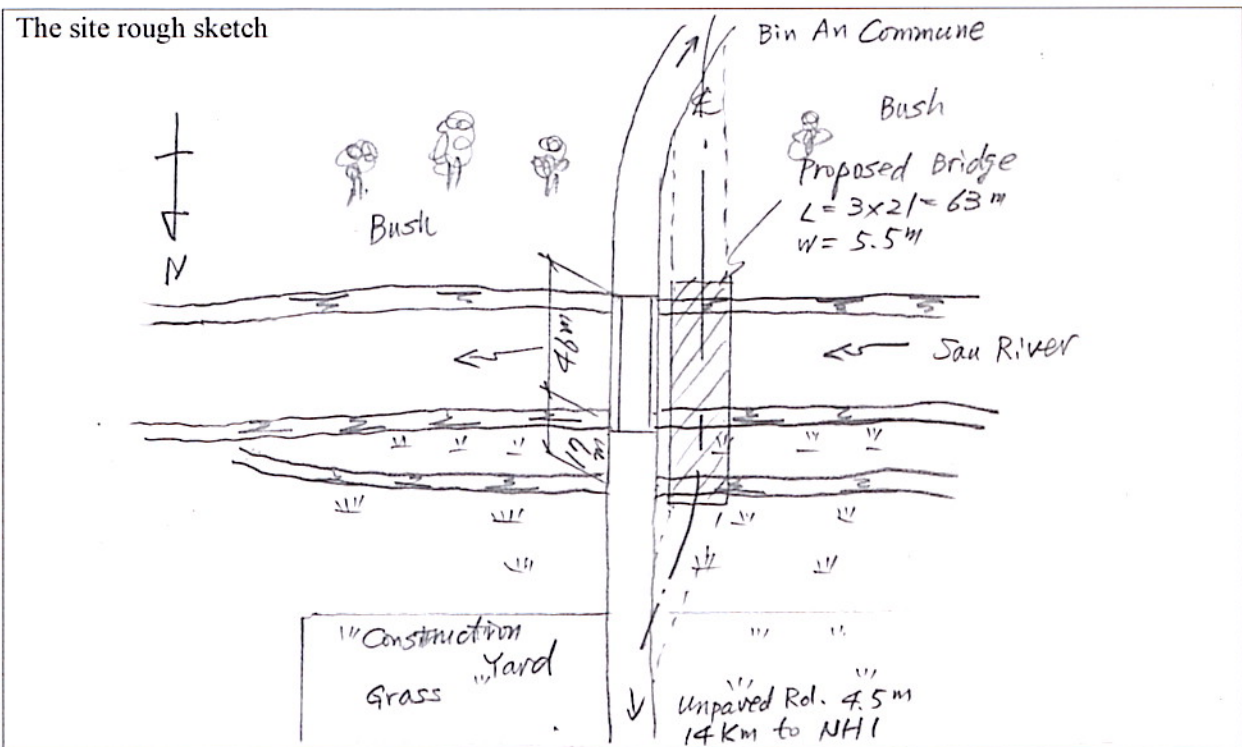 The site rough sketch
Bin An Commune
℄
Bush
Proposed Bridge
L = 3×21 = 63 m
W = 5.5 m
Bush
N
46 m
17 m
Sau River
Construction
Yard
Grass
Unpaved Rd. 4.5 m
14 Km to NH1